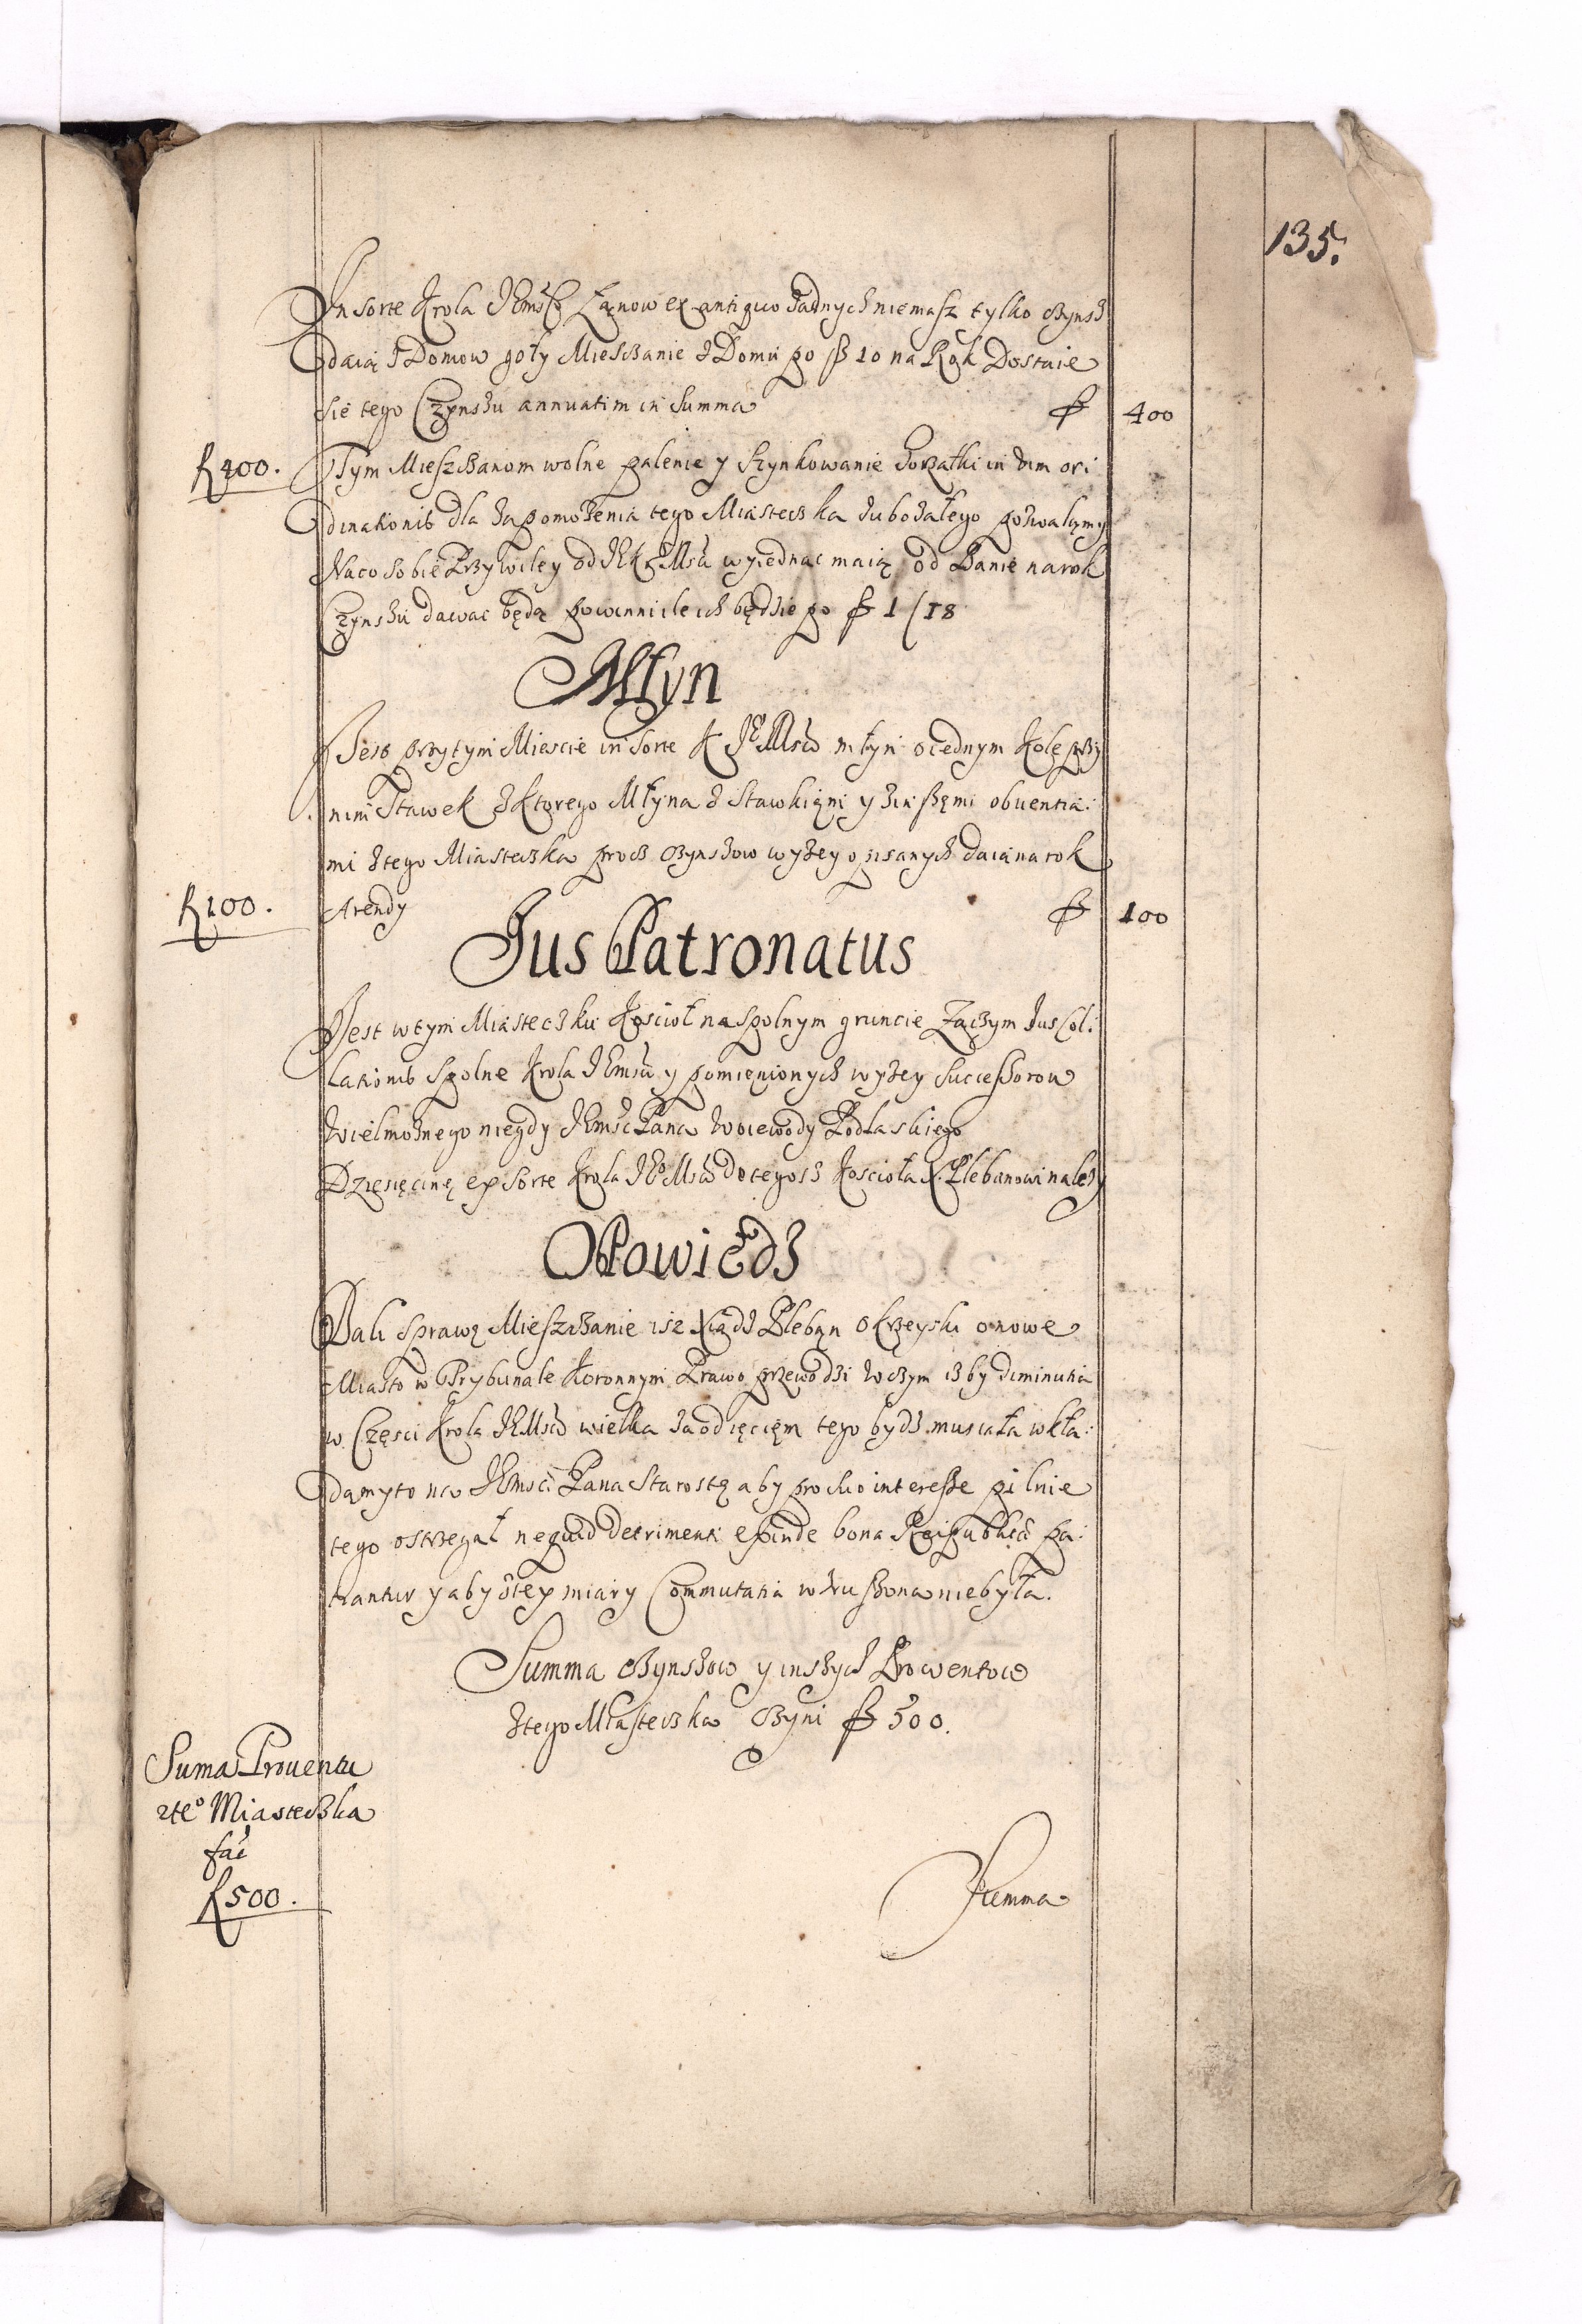 135.
In sorte Krola JEmści Łanow ex antiquo żadnych niemasz tylko Czynsz
daią z Domow goły Miesczanie z Domu po fl 10 na Rok Dostaie
Sie tego Czynszu annuatim in Summa fl 400
fl 400.
Tym Mieszczanom wolne palenie y Szynkowanie Gorzałki in vim ori
dinationis dla zapomożenia tego Miasteczka zubożałego pozwalamy
Naco sobie Przywiley od JKrMsci wyiednac maią od Banie na rok
Czynszu dawac będą powinni ile ich będzie po fl 1/18
Młyn
Jest przy tym Miescie in Sorte K JE Msci młyn o iednym Kole przy
nim Stawek z Ktorego Młyna z Stawkiem y inszemi obuentia:
mi z tego Miasteczka procz Czynszow wyżey opisanych daią na rok
Arendy fl 100
fl 100.
Jus Patronatus
Jest w tym Miasteczku Kosciół na spolnym gruncie Zaczym Jus Col:
lationis Spolne Krola JEmsci y pomienionych wyżey Successorow
Wielmożnego niegdy JEmsc Pana Woiewody Podlaskiego
Dziesięcinę ex Sorte Krola JEoMsci do tegosz Koscioła X. Plebanowi należy
Opowiedz
Dali sprawę Mieszczanie isz Xiądz Pleban Okrzeyski o nowe
Miasto w Trybunale Koronnym Prawo przewodzi w czym isz by diminutia
w Częsci Krola JEMsci wielka za odięciem tego bydz musiała wkła:
damy to na JEmsci Pana Starostę aby pro suo interesse pilnie
tego ostrzegał ne quid detrimenti exinde bona Reipublicae pa:
tiantur y aby z tey miary Commutatia wzruszona nie była.
Summa Czynszow y inszych Prowentow
z tego Miasteczka Czyni fl 500.
Suma Prouentu
zteo Miasteczka
faci
fl 500.
Summa